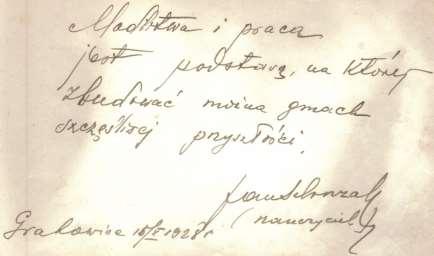 Modlitwa i praca
jest podstawą, na której
zbudować można gmach
szczęśliwej przyszłości.
nauczyciel
Grabowiec 1928 r